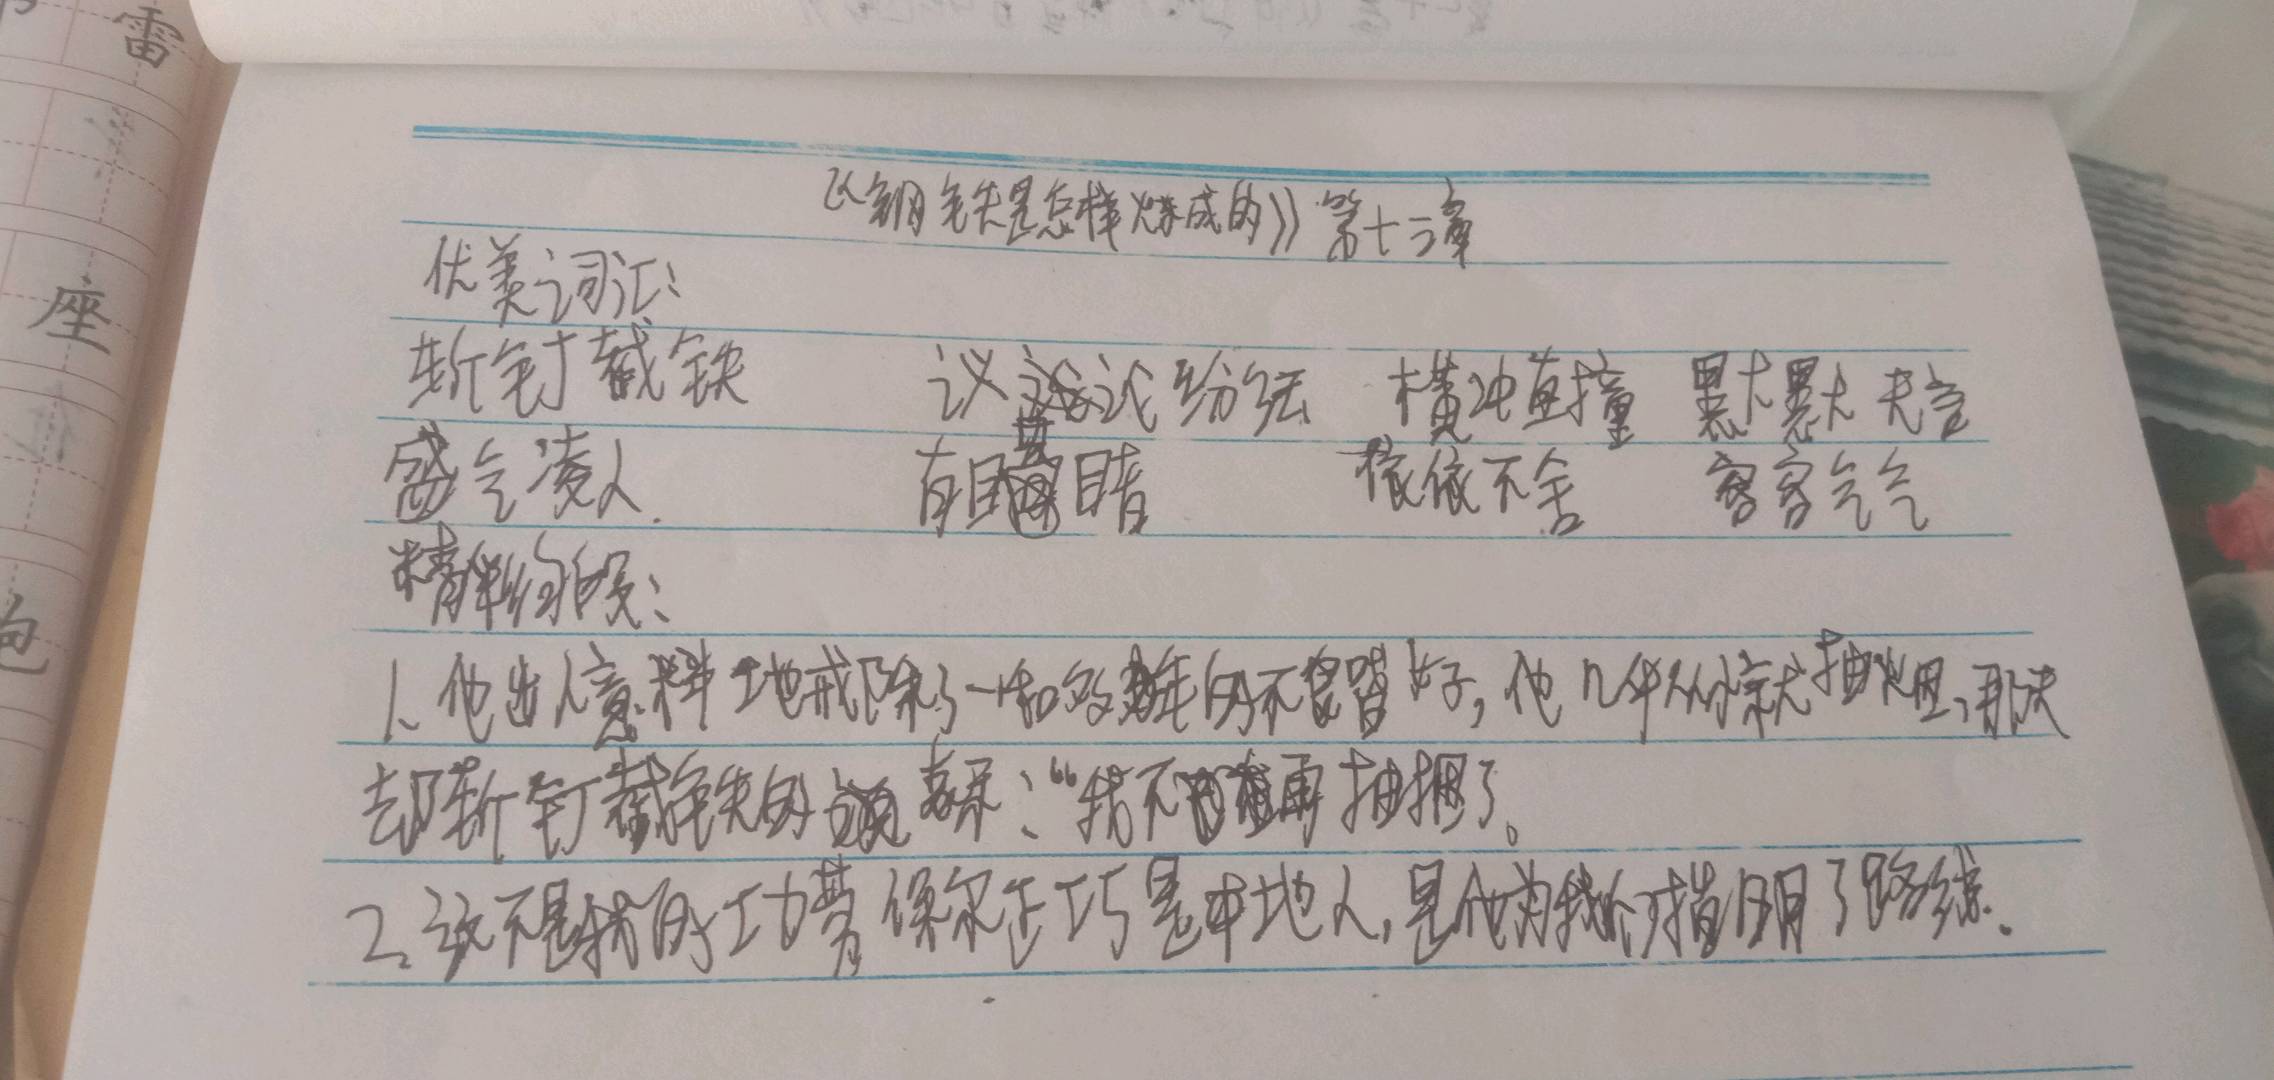 雷
座
《钢铁是怎样炼成的》第十二章
优美词汇:
斩钉截铁 议议纷纭 横冲直撞 默默无言
盛气凌人. 有目共睹 依依不舍 客客气气
精彩片段:
1、他出人意料地戒除了一知数年的不良嗜好,他几乎从小就抽烟,那天
却斩钉截铁的表示:“我不再抽捆了。
2、这不是我的功劳保尔正巧是本地人,是他为我们指明了路线.